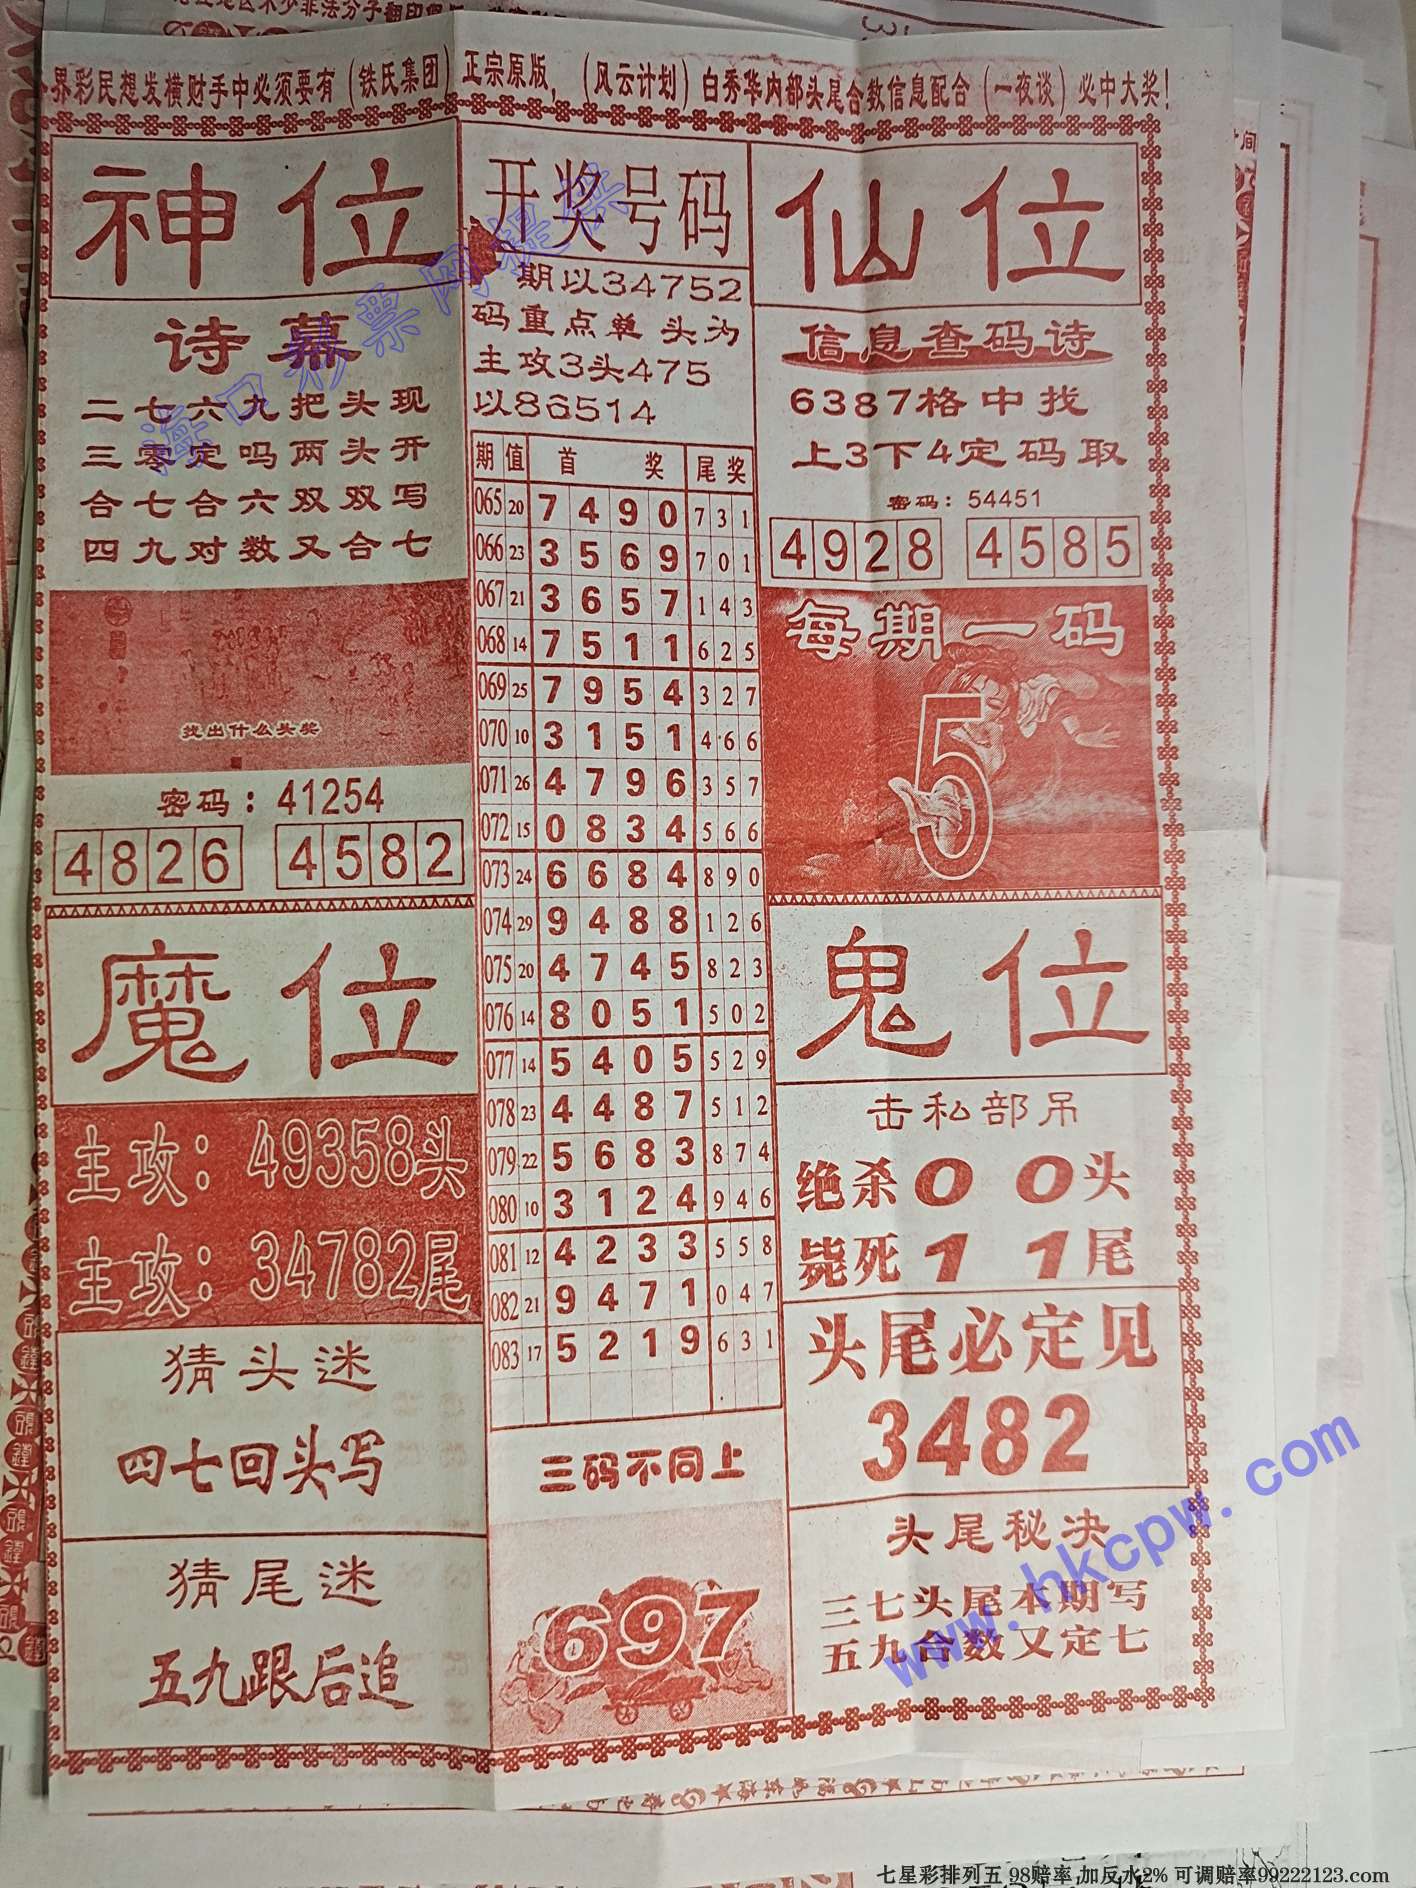 界彩民想发横财手中必须要有(铁氏集团)正宗原版,(风云计划)白秀华内部头尾合数信息配合(一夜谈)必中大奖!
神位
诗幕
二七六九把头现
三零定吗两头开
合七合六双双写
四九对数又合七
找出什么头奖
密码：41254
4826 4582
魔位
主攻：49358头
主攻：34782尾
猜头迷
四七回头写
猜尾迷
五九跟后追
开奖号码
期以34752
码重点单头为
主攻3头475
以86514
期 值 首奖 尾奖
065 20 7 4 9 0 7 3 1
066 23 3 5 6 9 7 0 1
067 21 3 6 5 7 1 4 3
068 14 7 5 1 1 6 2 5
069 25 7 9 5 4 3 2 7
070 10 3 1 5 1 4 6 6
071 26 4 7 9 6 3 5 7
072 15 0 8 3 4 5 6 6
073 24 6 6 8 4 8 9 0
074 29 9 4 8 8 1 2 6
075 20 4 7 4 5 8 2 3
076 14 8 0 5 1 5 0 2
077 14 5 4 0 5 5 2 9
078 23 4 4 8 7 5 1 2
079 22 5 6 8 3 8 7 4
080 10 3 1 2 4 9 4 6
081 12 4 2 3 3 5 5 8
082 21 9 4 7 1 0 4 7
083 17 5 2 1 9 6 3 1
三码不同上
697
仙位
信息查码诗
6387格中找
上3下4定码取
密码：54451
4928 4585
每期一码
5
鬼位
击私部吊
绝杀00头
毙死11尾
头尾必定见
3482
头尾秘决
三七头尾本期写
五九合数又定七
海口彩票网提供
www.hkcpw.com
七星彩排列五 98赔率,加反水2% 可调赔率99222123.com